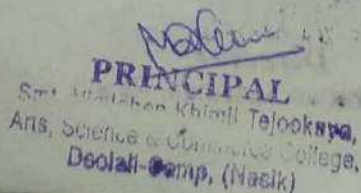 PRINCIPAL
Smt. Vimlaben Khimji Tejookaya,
Arts, Science & Commerce College,
Deolali-Camp, (Nasik)